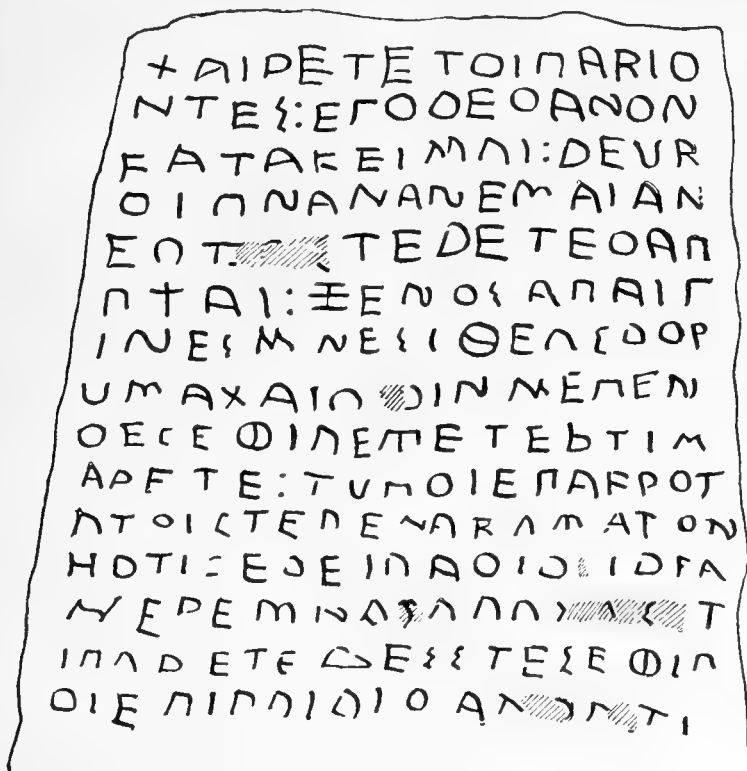 ΧΑΙΡΕΤΕΤΟΙΠΑΡΙΟ
ΝΤΕΣ:ΕΓΟΔΕΘΑΝΟΝ
ΚΑΤΑΚΕΙΜΑΙ:ΔΕΥΡ
ΟΙΟΝΑΝΑΝΕΜΑΙΑΝ
ΕΡΤ ΣΤΕΔΕΤΕΘΑΠ
ΠΤΑΙ:ΞΕΝΟΣΑΠΑΙΓ
ΙΝΕΣΜΝΕΣΙΘΕΟΣΔΟΝ
ΥΜΑΚΑΙΜ ΟΙΜΝΕΜΕΠΕΝ
ΘΕΚΕΦΙΛΕΜΕΤΕΡΤΙΜ
ΑΡΕΤΕ:ΤΥΜΟΙΕΠΑΚΡΟΤ
ΑΤΟΙΣΤΕΛΕΝΑΚΑΜΑΤΟΝ
ΗΟΤΙΣΕΡΕΙΠΑΡΙΟΣΙΔΙΑ
ΜΕΡΕΜΙΝΑΣΑΜΑ Τ
ΙΜΑΡΕΤΕΜΕΣΣΤΕΣΕΦΙΛ
ΟΙΕΠΙΠΑΙΔΙΘΑΝΟΝΤΙ